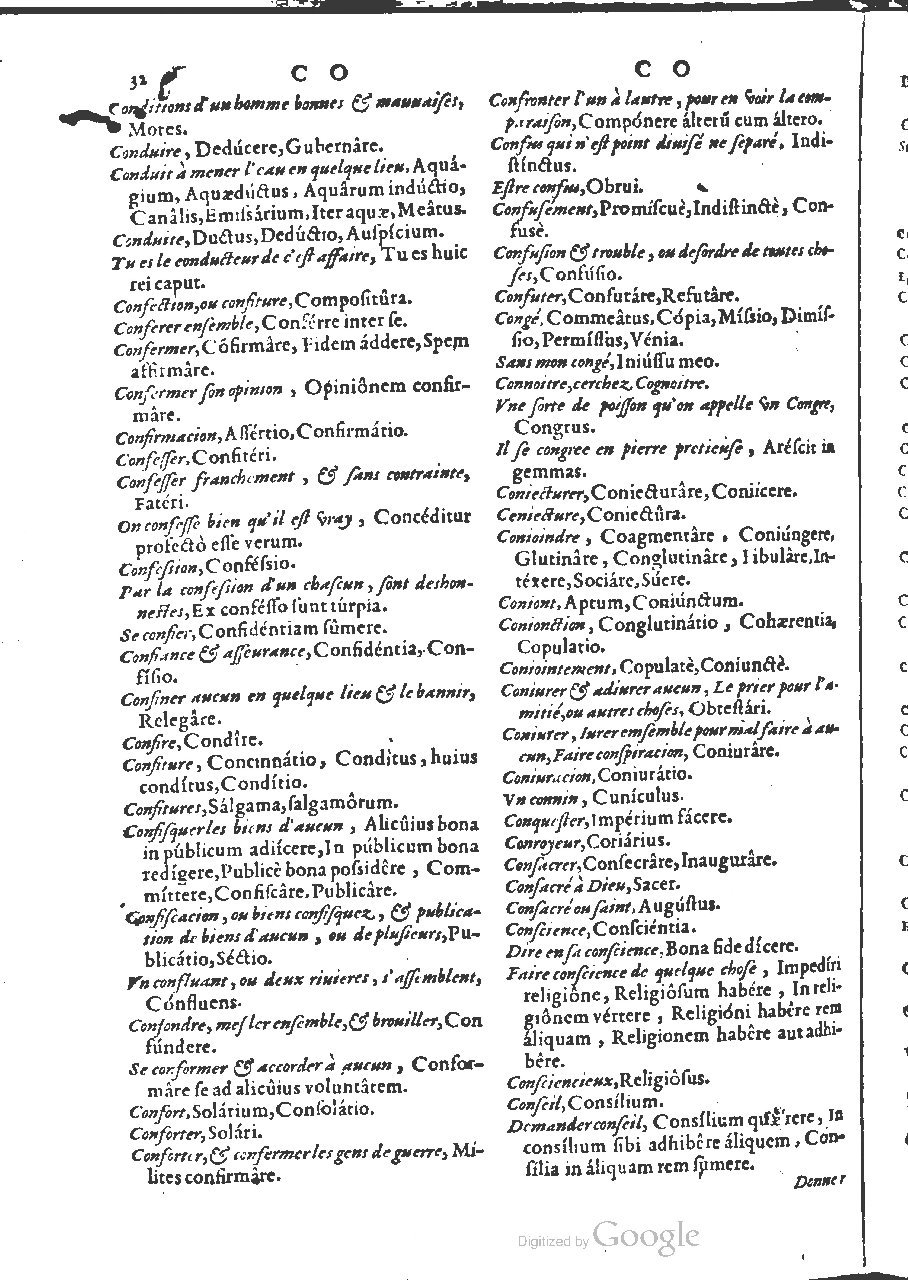 32
C O
Conditions d'un homme bonnes & mauuaises,
Mores.
Conduire, Dedúcere, Gubernâre.
Conduit à mener l'eau en quelque lieu, Aquá-
gium, Aquædúctus, Aquârum indúctio,
Canâlis, Emissárium, Iter aquæ, Meâtus.
Conduite, Ductus, Dedúctio, Auspícium.
Tu es le conducteur de c'est affaire, Tu es huic
rei caput.
Confection, ou confiture, Compositûra.
Conferer ensemble, Conférre inter se.
Confermer, Cõfirmâre, Fidem áddere, Spem
affirmâre.
Confermer son opinion, Opiniônem confir-
mâre.
Confirmacion, Assértio, Confirmátio.
Confesser, Confitéri.
Confesser franchement, & sans contrainte,
Fatéri.
On confesse bien qu'il est vray, Concéditur
profectò esse verum.
Confession, Conféssio.
Par la confession d'un chascun, sont deshon-
nestes, Ex conféssο sunt túrpia.
Se confier, Confidéntiam sûmere.
Confiance & asseurance, Confidéntia, Con-
físio.
Confiner aucun en quelque lieu & le bannir,
Relegâre.
Confire, Condîre.
Confiture, Concinnátio, Condítus, huius
condítus, Condítio.
Confitures, Sálgama, salgamôrum.
Confisquer les biens d'aucun, Alicûius bona
in públicum adiícere, In públicum bona
redígere, Publicè bona possidêre, Com-
míttere, Confiscâre, Publicâre.
Confiscacion, ou biens confisquez, & publica-
tion de biens d'aucun, ou de plusieurs, Pu-
blicátio, Séctio.
Vn confluant, ou deux riuieres, s'assemblent,
Cónfluens.
Confondre, mesler ensemble, & brouiller, Con
fúndere.
Se conformer & accorder à aucun, Confor-
mâre se ad alicûius voluntâtem.
Confort, Solárium, Consolátio.
Conforter, Solári.
Conforter, & confermer les gens de guerre, Mi-
lites confirmâre.
C O
Confronter l'un à lautre, pour en voir la com-
paraison, Compónere álterũ cum áltero.
Confus qui n'est point diuisé ne separé, Indi-
stínctus.
Estre confus, Obrui.
Confusement, Promíscuè, Indistinctè, Con-
fusè.
Confusion & trouble, ou desordre de toutes cho-
ses, Confúsio.
Confuter, Confutáre, Refutâre.
Congé, Commeâtus, Cópia, Míssio, Dimís-
sio, Permíssus, Vénia.
Sans mon congé, Iniússu meo.
Connoitre, cerchez, Cognoitre.
Vne sorte de poisson qu'on appelle vn Congre,
Congrus.
Il se congree en pierre pretieuse, Aréscit in
gemmas.
Coniecturer, Coniecturâre, Coniícere.
Coniecture, Coniectûra.
Conioindre, Coagmentâre, Coniúngere,
Glutinâre, Conglutinâre, Fibulâre, In-
téxere, Sociáre, Súere.
Conioint, Aptum, Coniúnctum.
Conionction, Conglutinátio, Cohærentia,
Copulatio.
Coniointement, Copulatè, Coniunctè.
Coniurer & adiurer aucun, Le prier pour l'a-
mitié, ou autres choses, Obtestári.
Coniurer, Iurer ensemble pour mal faire à au-
cun, Faire conspiracion, Coniurâre.
Coniuracion, Coniurátio.
Vn connin, Cunículus.
Conquester, Impérium fácere.
Conroyeur, Coriárius.
Consacrer, Consecrâre, Inaugurâre.
Consacré à Dieu, Sacer.
Consacré ou saint, Augústus.
Conscience, Consciéntia.
Dire en sa conscience, Bona fide dícere.
Faire conscience de quelque chose, Impedíri
religiône, Religiôsum habére, In reli-
giônem vértere, Religióni habêre rem
áliquam, Religionem habêre aut adhi-
bêre.
Consciencieux, Religiôsus.
Conseil, Consílium.
Demander conseil, Consílium quǽrere, In
consílium sibi adhibêre áliquem, Con-
silia in áliquam rem sumere.
Donner
Digitized by Google